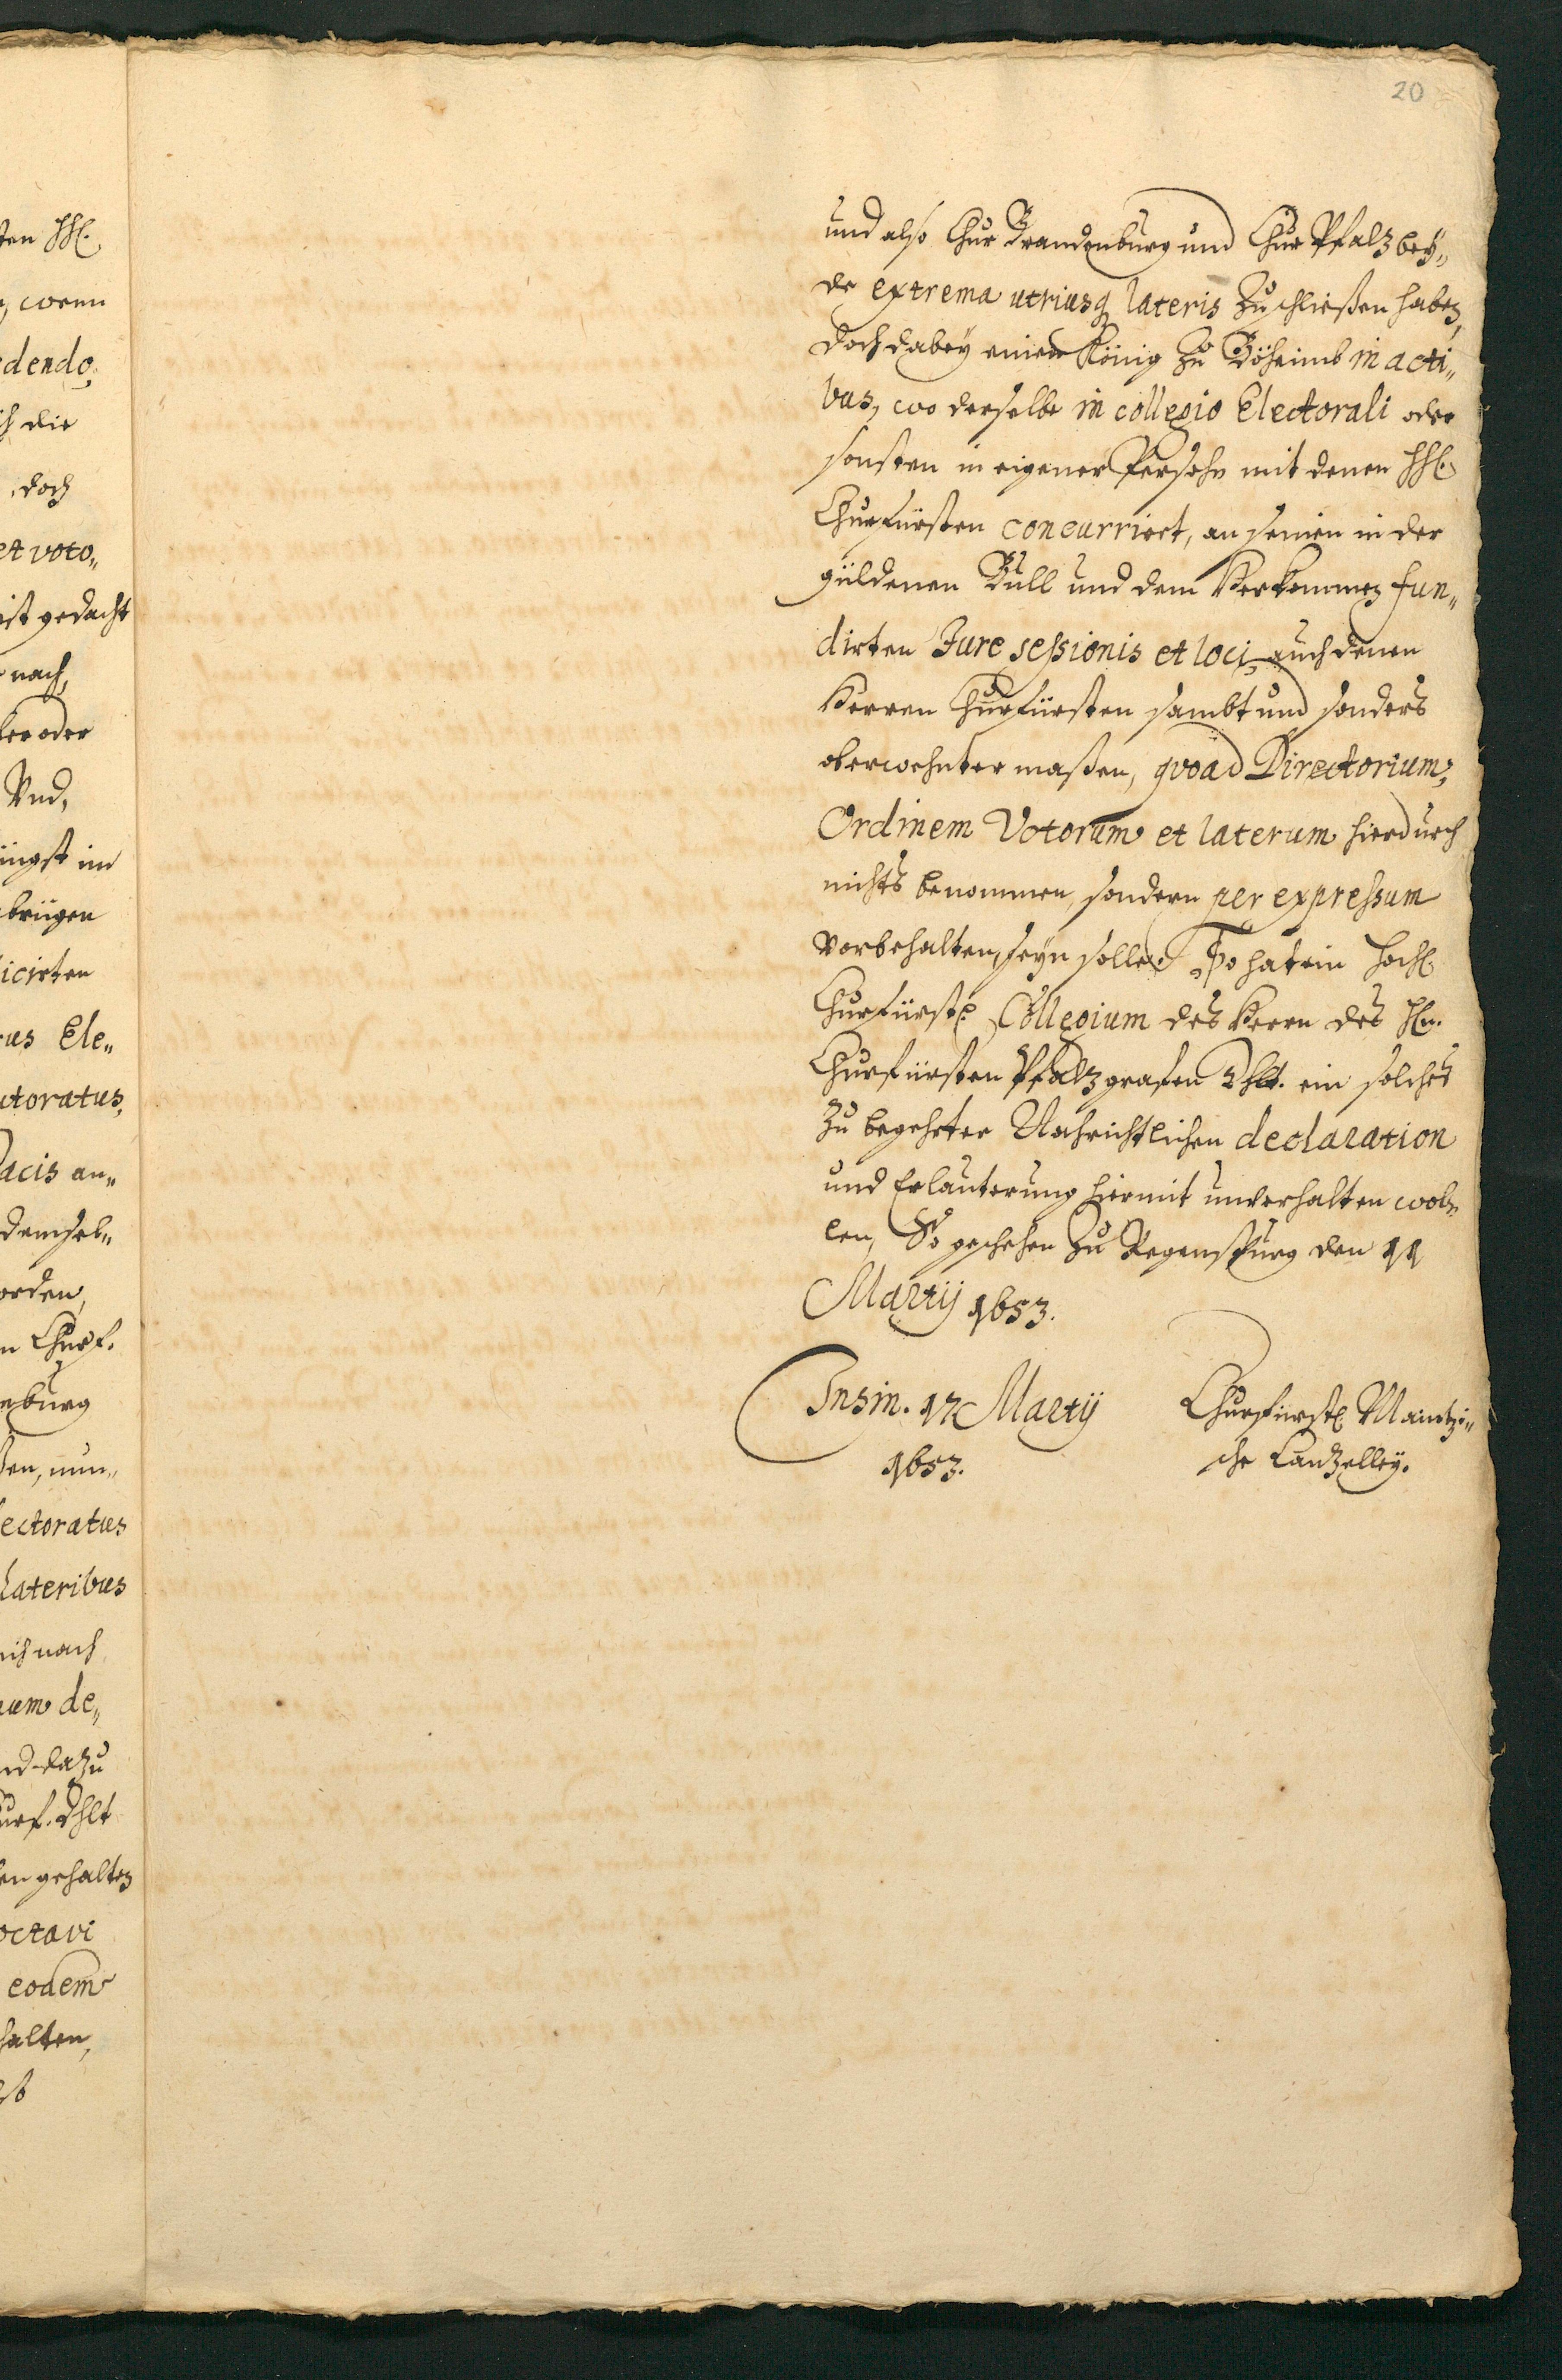 20
ten HH.
, wenn
dendo,
ch die
, doch
et voto„
ist gedacht
nach,
oder
Vnd,
üngst im
brigen
icirten
us Ele„
ctoratus,
acis an„
demsel„
orden,
n Churf.
eburg
ßen, nun„
lectoratus
Lateribus
nach
um de„
nd dazu
urf. Dhlt
en gehalten
octavi
eodem
halten,
und also Chur Brandenburg und Chur Pfalz bey„
de extrema utriusq lateris zuschließen haben,
doch dabey einem König zu Böheimb in acti„
bus, wo derselbe in collegio Electorali oder
sonsten in eigener Persohn mit denen HH.
Churfürsten concurriert, an seinen in der
güldenen Bull und dem Herkommen fun„
dirten Jure sessionis et loci, auch denen
Herren Churfürsten sambt und sonders
oberwehnter maßen, quoad Directorium,
Ordinem Votorum et laterum hierdurch
nichts benommen, sondern per expressum
vorbehalten, seyn solle. So hat ein Hochl.
Churfürstl. Collegium des Herrn des Hn.
Churfürsten Pfalzgrafen Dhlt. ein solches
zu begehrter Nachrichtlichen declaration
und Erläuterung hiermit unverhalten wol„
len, So geschehen zu Regenspurg den 11
Martij 1653.
Insin. 17 Martij
1653.
Churfürstl. Maintzi„
sche Cantzelley.